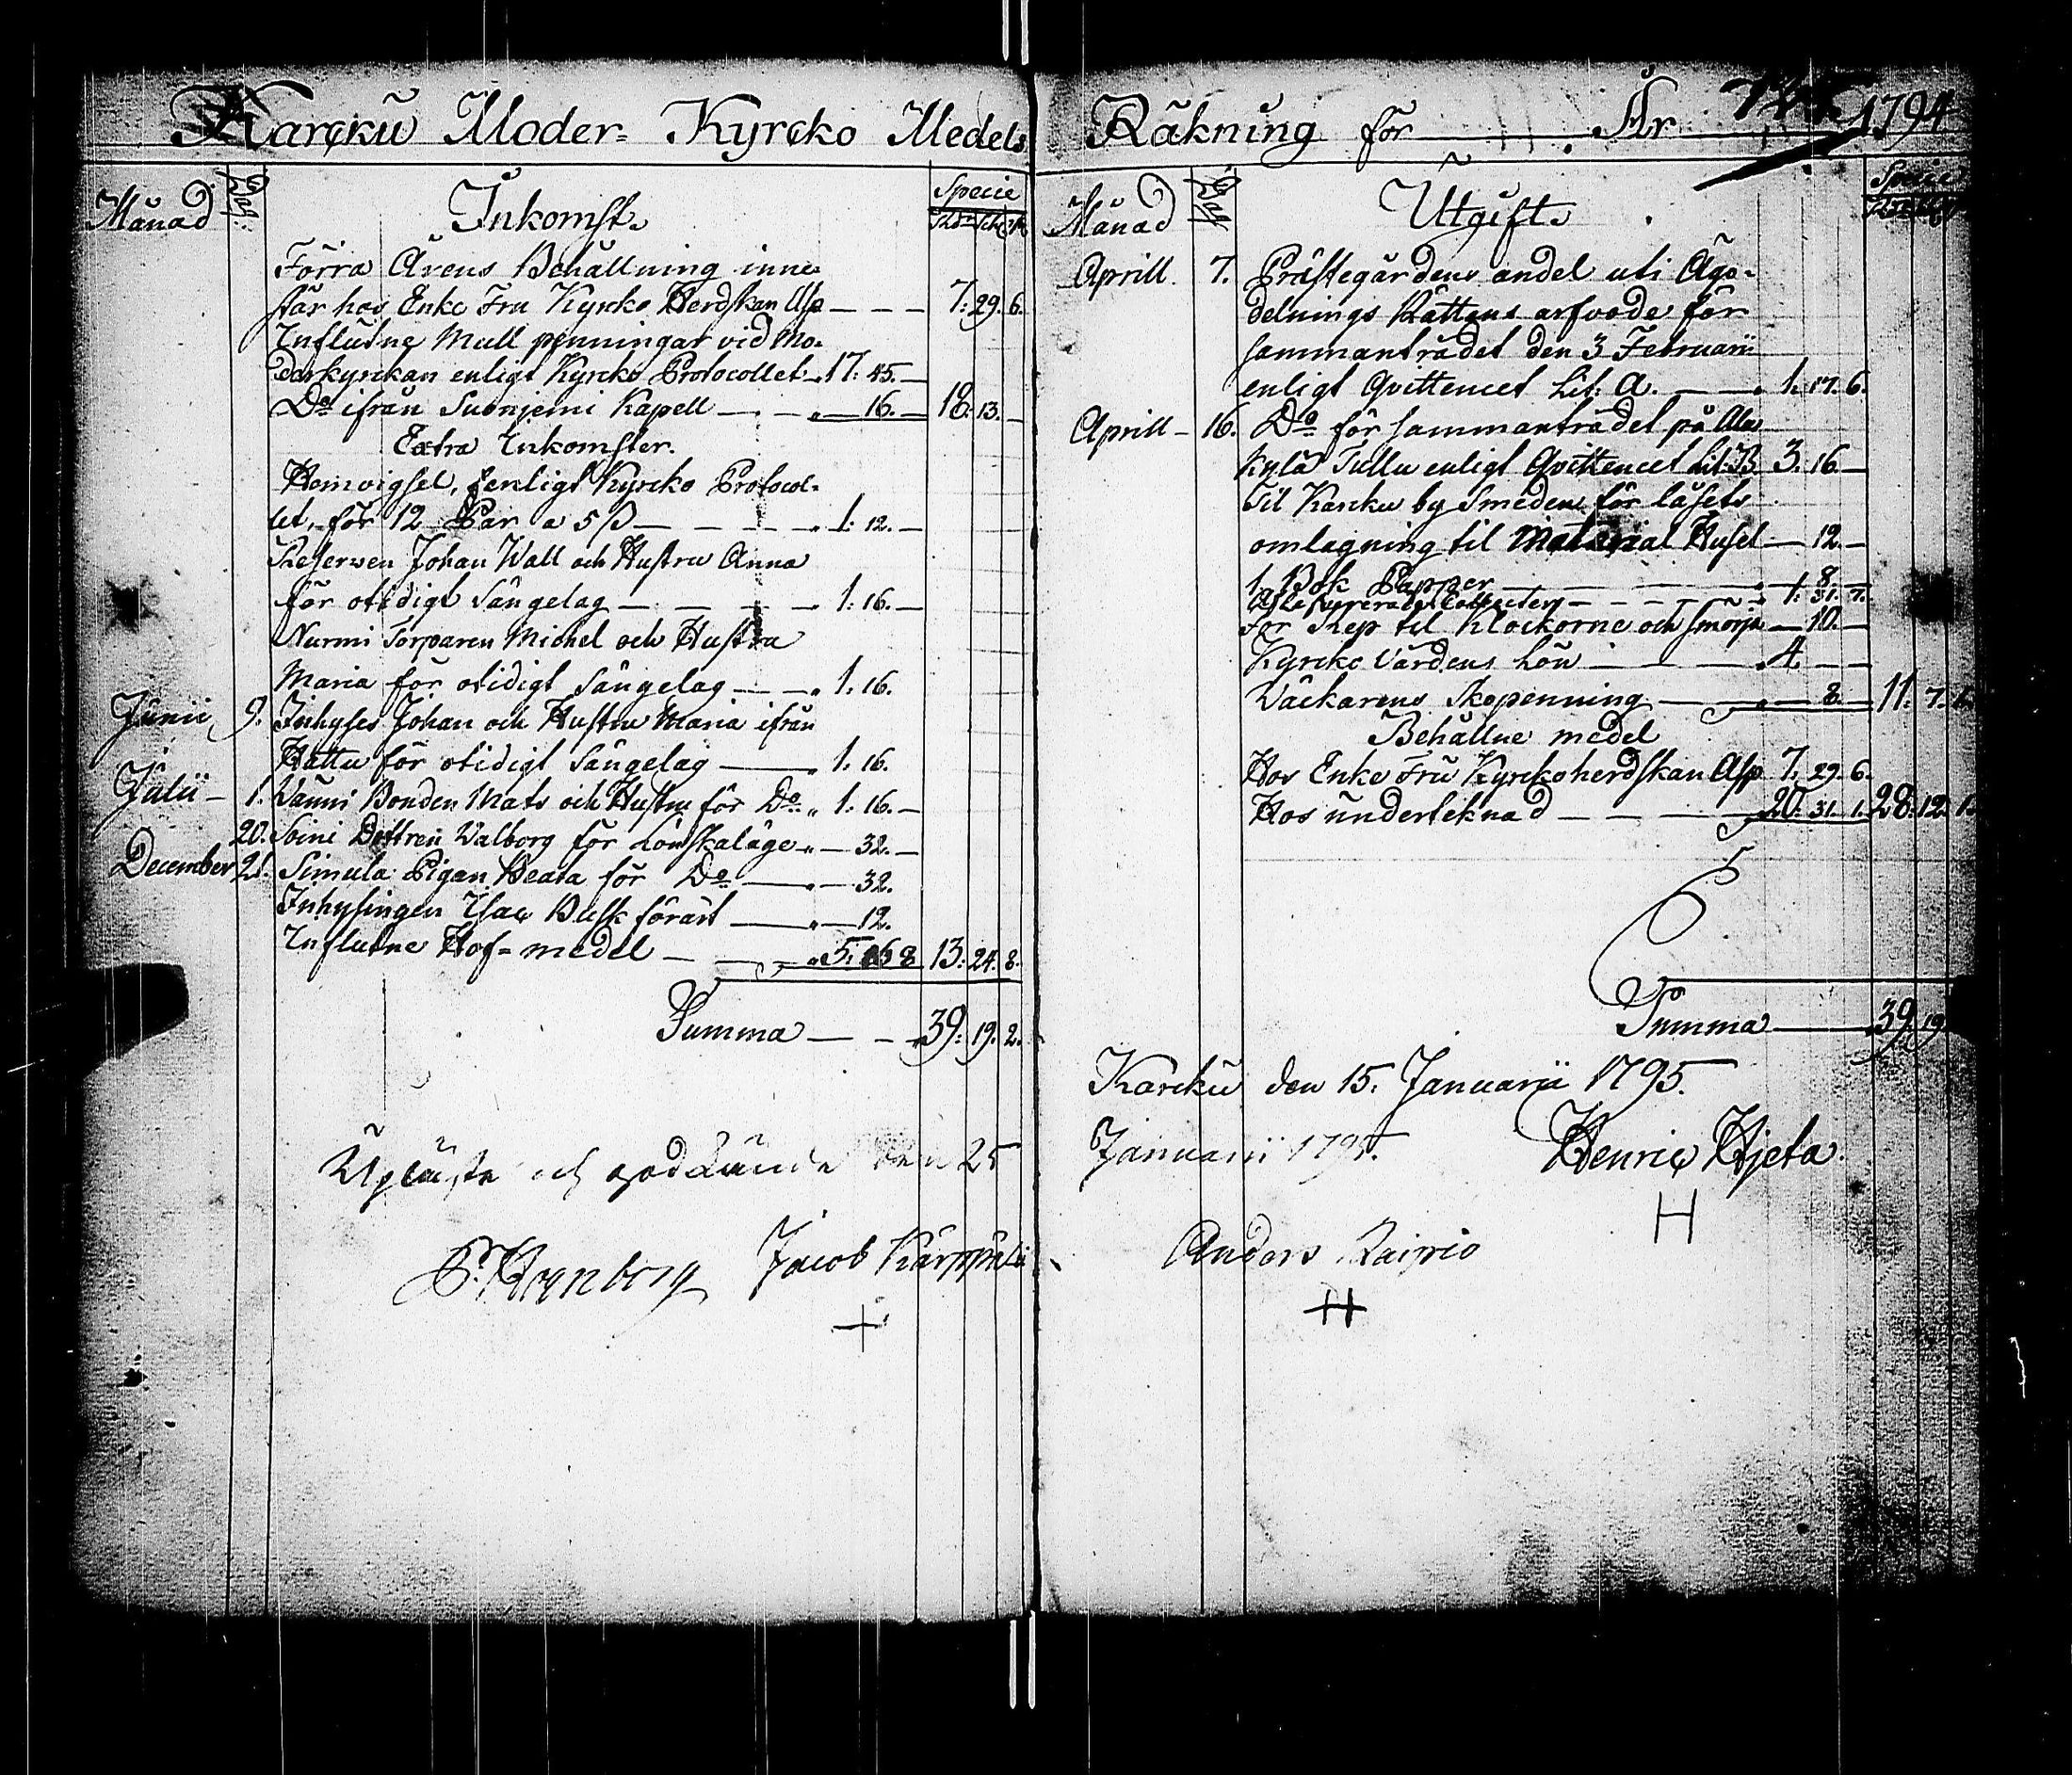 Karcku Moder= Kyrcko Medels Räkning för År 1794
Månad Dag Inkomst. Specie
Förra Årens Behållning inne
står hos Enke Fru Kyrko Herdskan Asp — — — 7: 29. 6.
Influtne Mull penningar vid Mo-
derkyrckan enligt Kyrcko Protocollet 17: 45. —
Do ifrån Suonjemi Kapell — — 16. — 18: 13. —
Extra Inkomster.
Hemvigsel, enligt Kyrcko Protocol-
let, för 12 Par a 5 ß — — — 1: 12. —
Reserven Johan Wall och Hustru Anna
för otidigt Sängelag — — — 1: 16. —
Nurmi Torparen Michel och Hustru
Maria för otidigt Sängelag — — 1: 16.
Junii 9. Inhyses Johan och Hustru Maria ifrån
Hattu för otidigt Sängelag — 1: 16.
Julii — 1. Bonden Mats och Hustru för Do 1: 16. —
20. Dottren Walborg för Lönskaläge — 32. —
December 21. Simula Pigan Beata för Do — 32.
Inhysingen Isac Busk förärt — 12.
Influtne Hof= medel — 5: 16 8 13: 24. 8.
Summa — — 39: 19. 2.
Upläste och godkände den 25
Jacob
+
Månad Dag Utgift. Specie
Aprill 7. Prästegårdens andel uti Ägo-
delnings Rättens arfvode för
sammanträdet den 3 Februarii
enligt Qvittencet Lit: A. — 1: 17. 6.
Aprill — 16. Do för sammanträdet på Ala
kylä Tullu enligt Qvittencet Lit: B 3. 16 —
Til Karcku by Smeden för låsets
omlagning til Material Huset — 12. —
1. Bok Papper — 8. —
Collecten — 1: 31. 7.
För Rep til Klockorne och smörja — 10. —
Kyrcko Värdens Lön — 4. — —
Väckarens Skopenning — 8. — 11: 7. 1.
Behållne medel
Hos Enke Fru Kyrckoherdskan Asp 7. 29. 6.
Hos underteknad — — 20. 31. 1. 28: 12.
Summa — 39. 19
Karcku den 15. Januarii 1795.
Januarii 1795. Henric Hjeta.
H
Anders Raipio
H